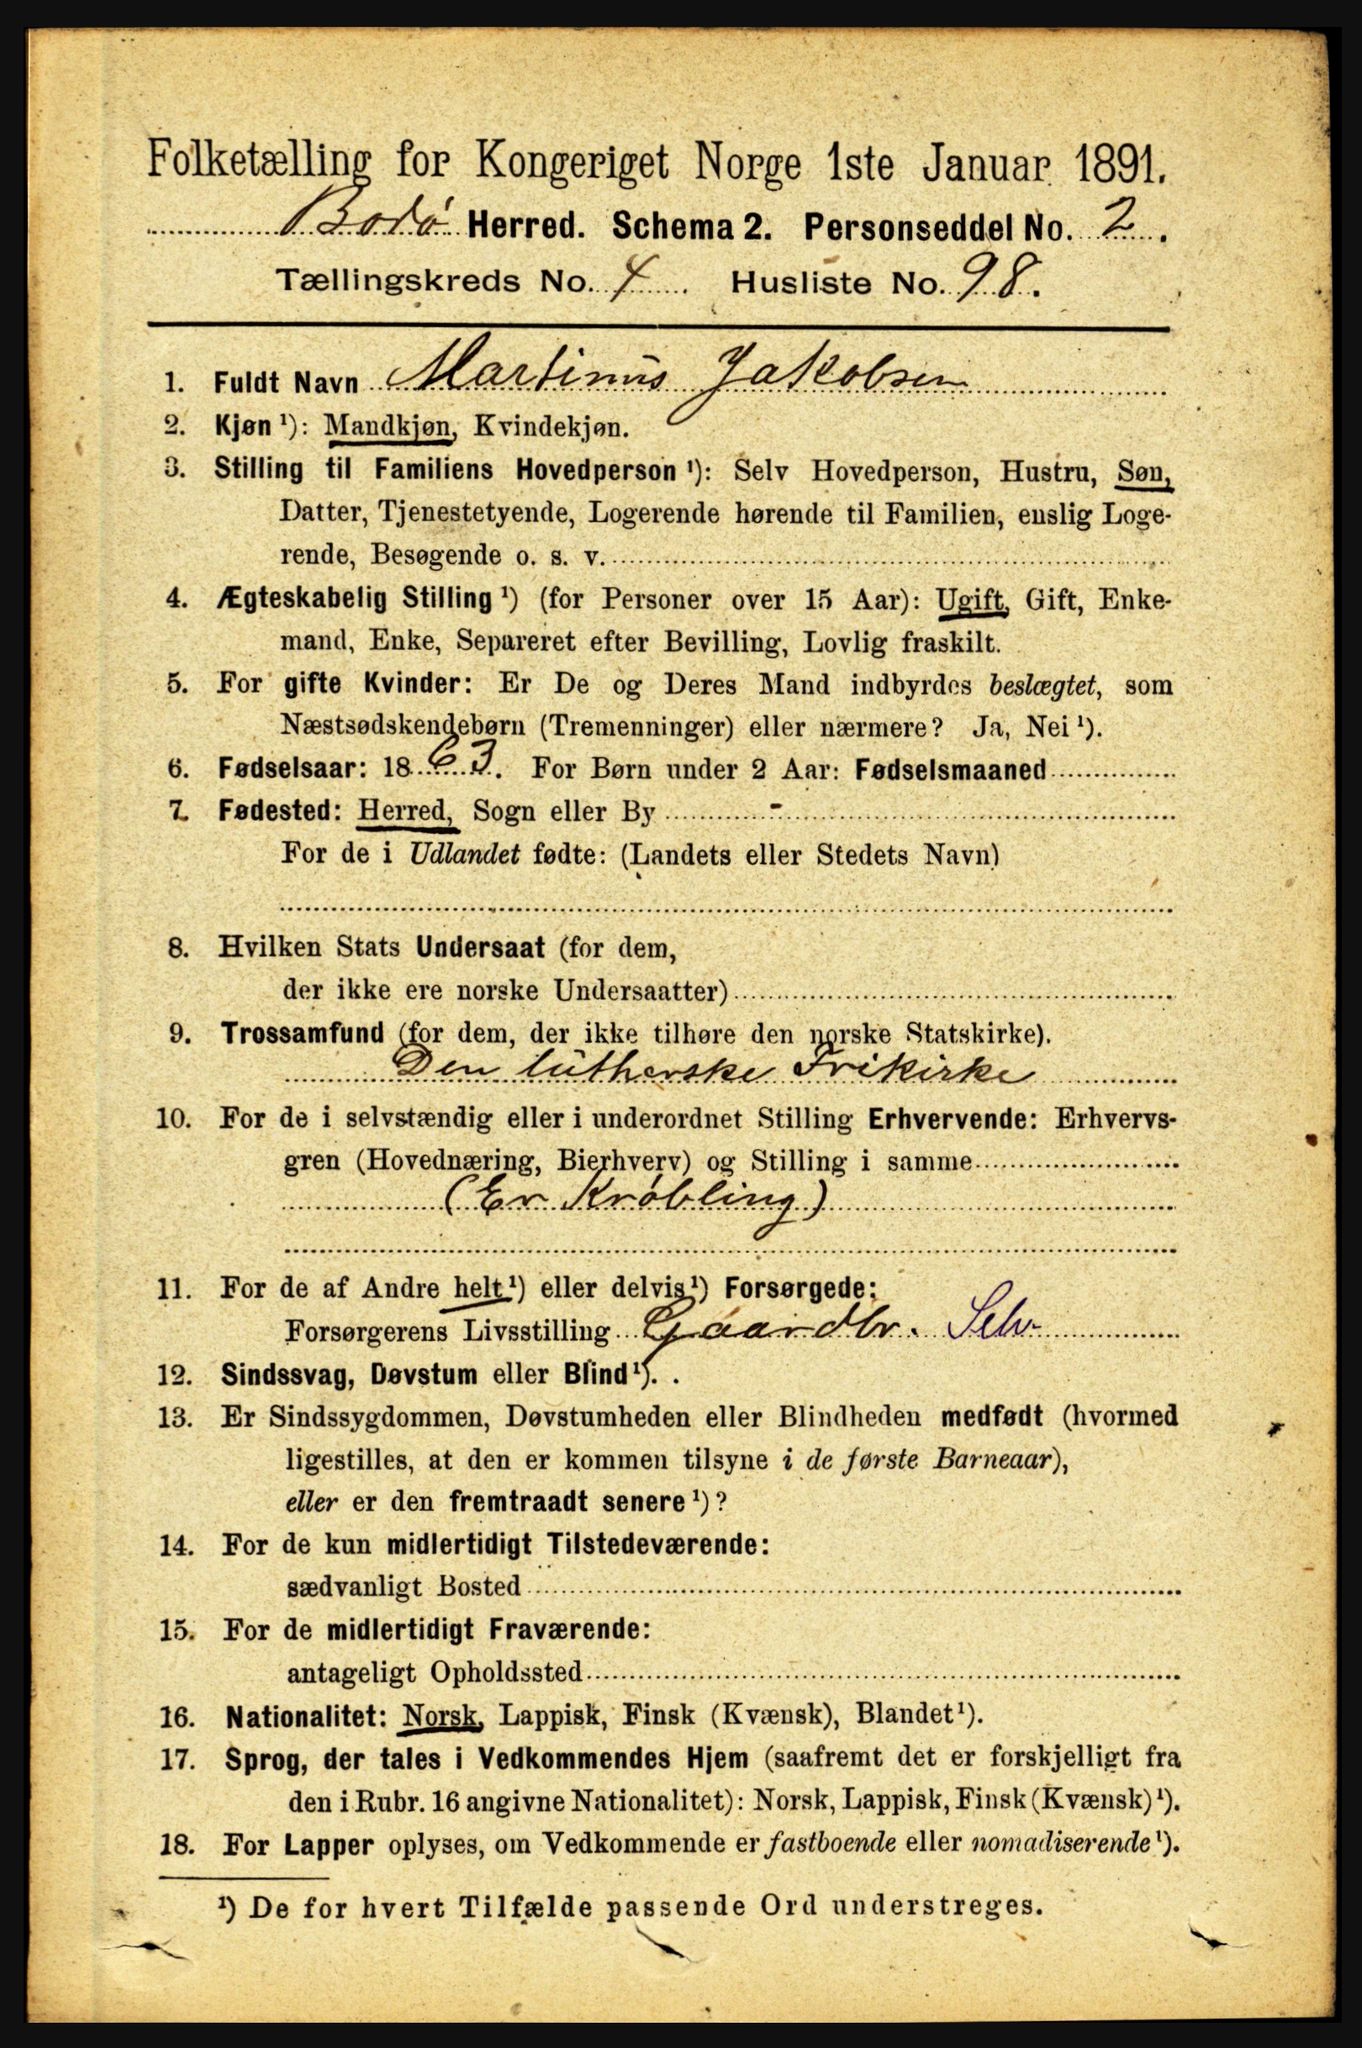 Folketælling for Kongeriget Norge 1ste Januar 1891.
Bodø Herred. Schema 2. Personseddel No. 2.
Tællingskreds No. 4. Husliste No. 98.
1. Fuldt Navn Martinus Jakobsen
2. Kjøn ¹): Mandkjøn, Kvindekjøn.
3. Stilling til Familiens Hovedperson ¹): Selv Hovedperson, Hustru, Søn,
Datter, Tjenestetyende, Logerende hørende til Familien, enslig Loge-
rende, Besøgende o. s. v.
4. Ægteskabelig Stilling ¹) (for Personer over 15 Aar): Ugift, Gift, Enke-
mand, Enke, Separeret efter Bevilling, Lovlig fraskilt.
5. For gifte Kvinder: Er De og Deres Mand indbyrdes beslægtet, som
Næstsødskendebørn (Tremenninger) eller nærmere? Ja, Nei ¹).
6. Fødselsaar: 1863. For Børn under 2 Aar: Fødselsmaaned
7. Fødested: Herred, Sogn eller By -
For de i Udlandet fødte: (Landets eller Stedets Navn)
8. Hvilken Stats Undersaat (for dem,
der ikke ere norske Undersaatter)
9. Trossamfund (for dem, der ikke tilhøre den norske Statskirke).
Den lutherske Frikirke
10. For de i selvstændig eller i underordnet Stilling Erhvervende: Erhvervs-
gren (Hovednæring, Bierhverv) og Stilling i samme
(Er Krøbling)
11. For de af Andre helt ¹) eller delvis ¹) Forsørgede:
Forsørgerens Livsstilling Gaardbr. Selv
12. Sindssvag, Døvstum eller Blind ¹). .
13. Er Sindssygdommen, Døvstumheden eller Blindheden medfødt (hvormed
ligestilles, at den er kommen tilsyne i de første Barneaar),
eller er den fremtraadt senere ¹)?
14. For de kun midlertidigt Tilstedeværende:
sædvanligt Bosted
15. For de midlertidigt Fraværende:
antageligt Opholdssted
16. Nationalitet: Norsk, Lappisk, Finsk (Kvænsk), Blandet ¹).
17. Sprog, der tales i Vedkommendes Hjem (saafremt det er forskjelligt fra
den i Rubr. 16 angivne Nationalitet): Norsk, Lappisk, Finsk (Kvænsk) ¹).
18. For Lapper oplyses, om Vedkommende er fastboende eller nomadiserende ¹).
¹) De for hvert Tilfælde passende Ord understreges.